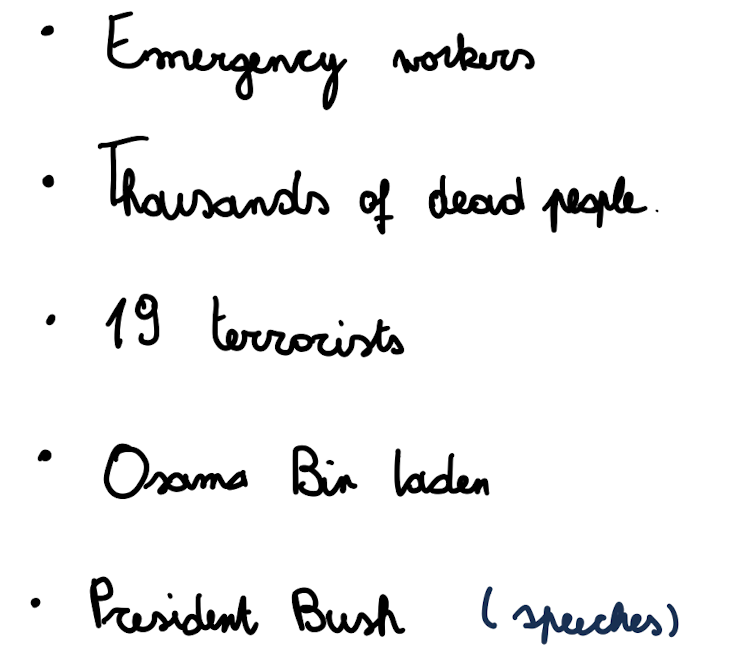 • Emergency workers
• Thousands of dead people.
• 19 terrorists
• Osama Bin laden
• President Bush (speeches)